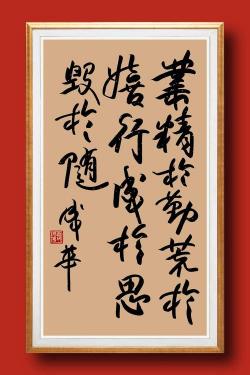 業精於勤荒於
嬉行成於思
毀於隨
華